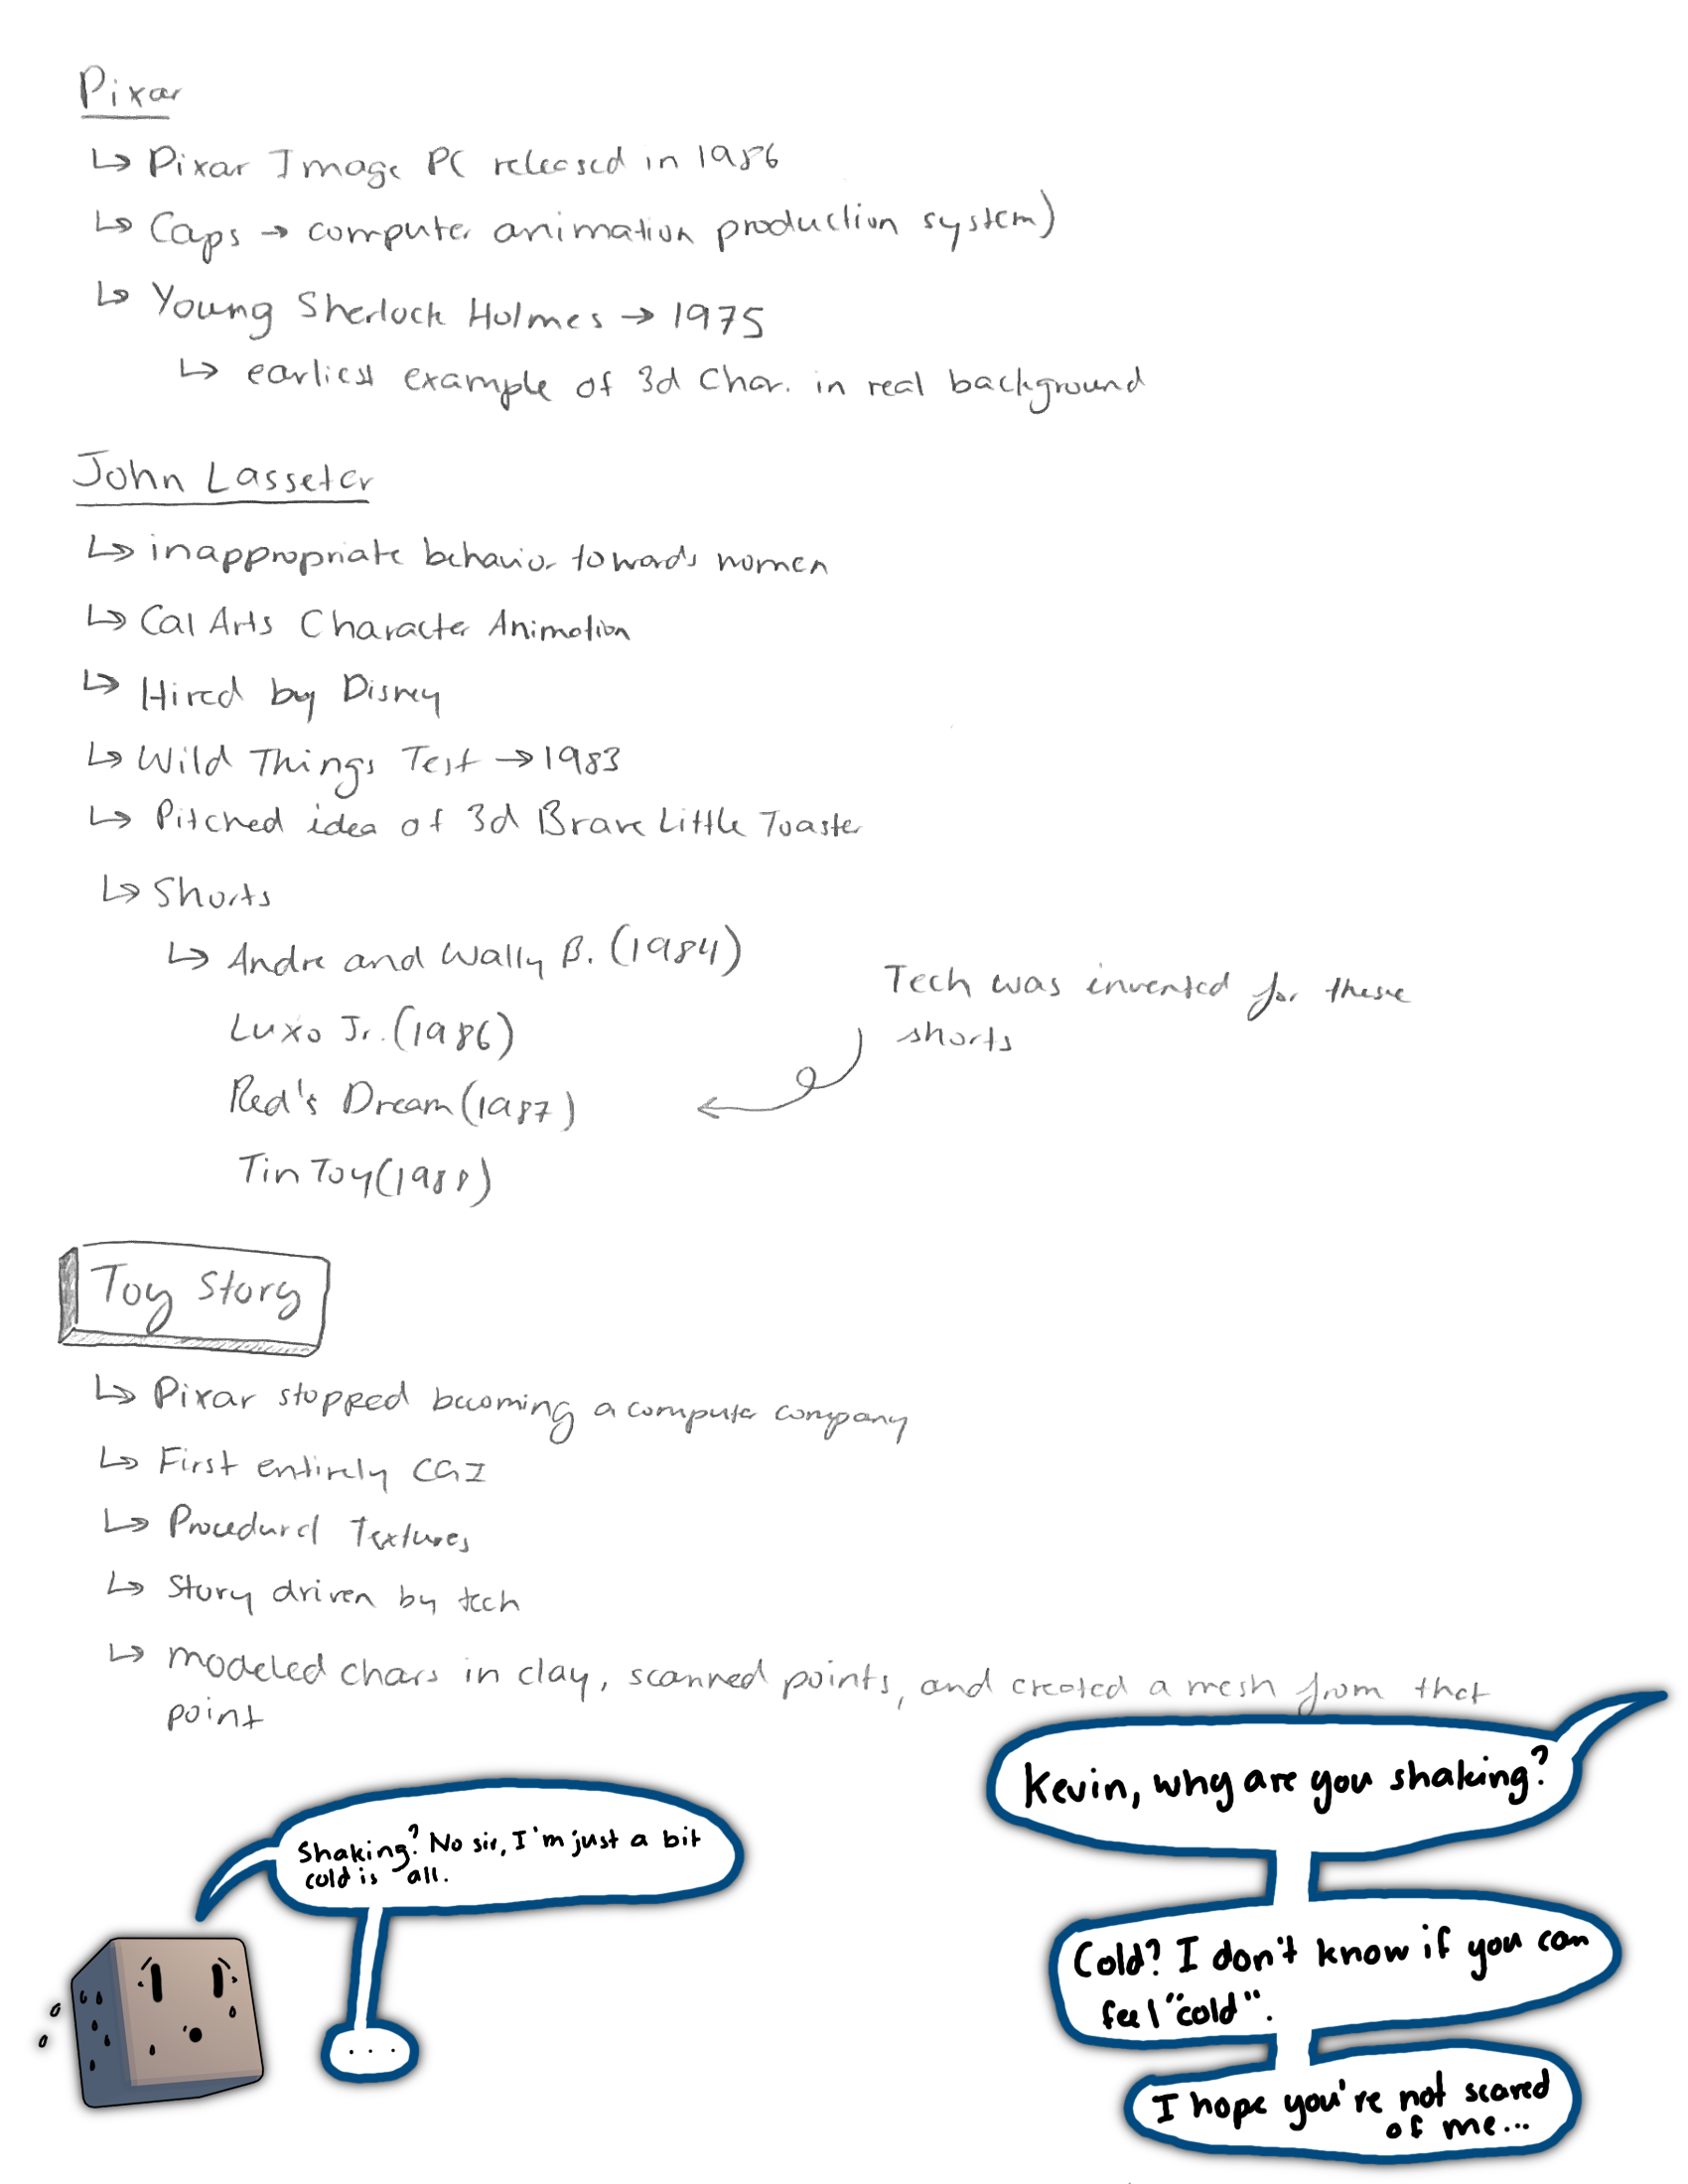 Pixar
↳ Pixar Image PC released in 1986
↳ Caps → computer animation production system)
↳ Young Sherlock Holmes → 1975
↳ earliest example of 3d Char. in real background
John Lasseter
↳ inappropriate behavior towards women
↳ Cal Arts Character Animation
↳ Hired by Disney
↳ Wild Things Test → 1983
↳ Pitched idea of 3d Brave Little Toaster
↳ Shorts
↳ Andre and Wally B. (1984)
Luxo Jr. (1986)
Red's Dream (1987)
Tin Toy (1988)
Tech was invented for these
shorts
Toy Story
↳ Pixar stopped becoming a computer company
↳ First entirely CGI
↳ Procedural Textures
↳ Story driven by tech
↳ modeled chars in clay, scanned points, and created a mesh from that
point
Kevin, why are you shaking?
Shaking? No sir, I'm just a bit
cold is all.
...
Cold? I don't know if you can
feel "cold".
I hope you're not scared
of me...